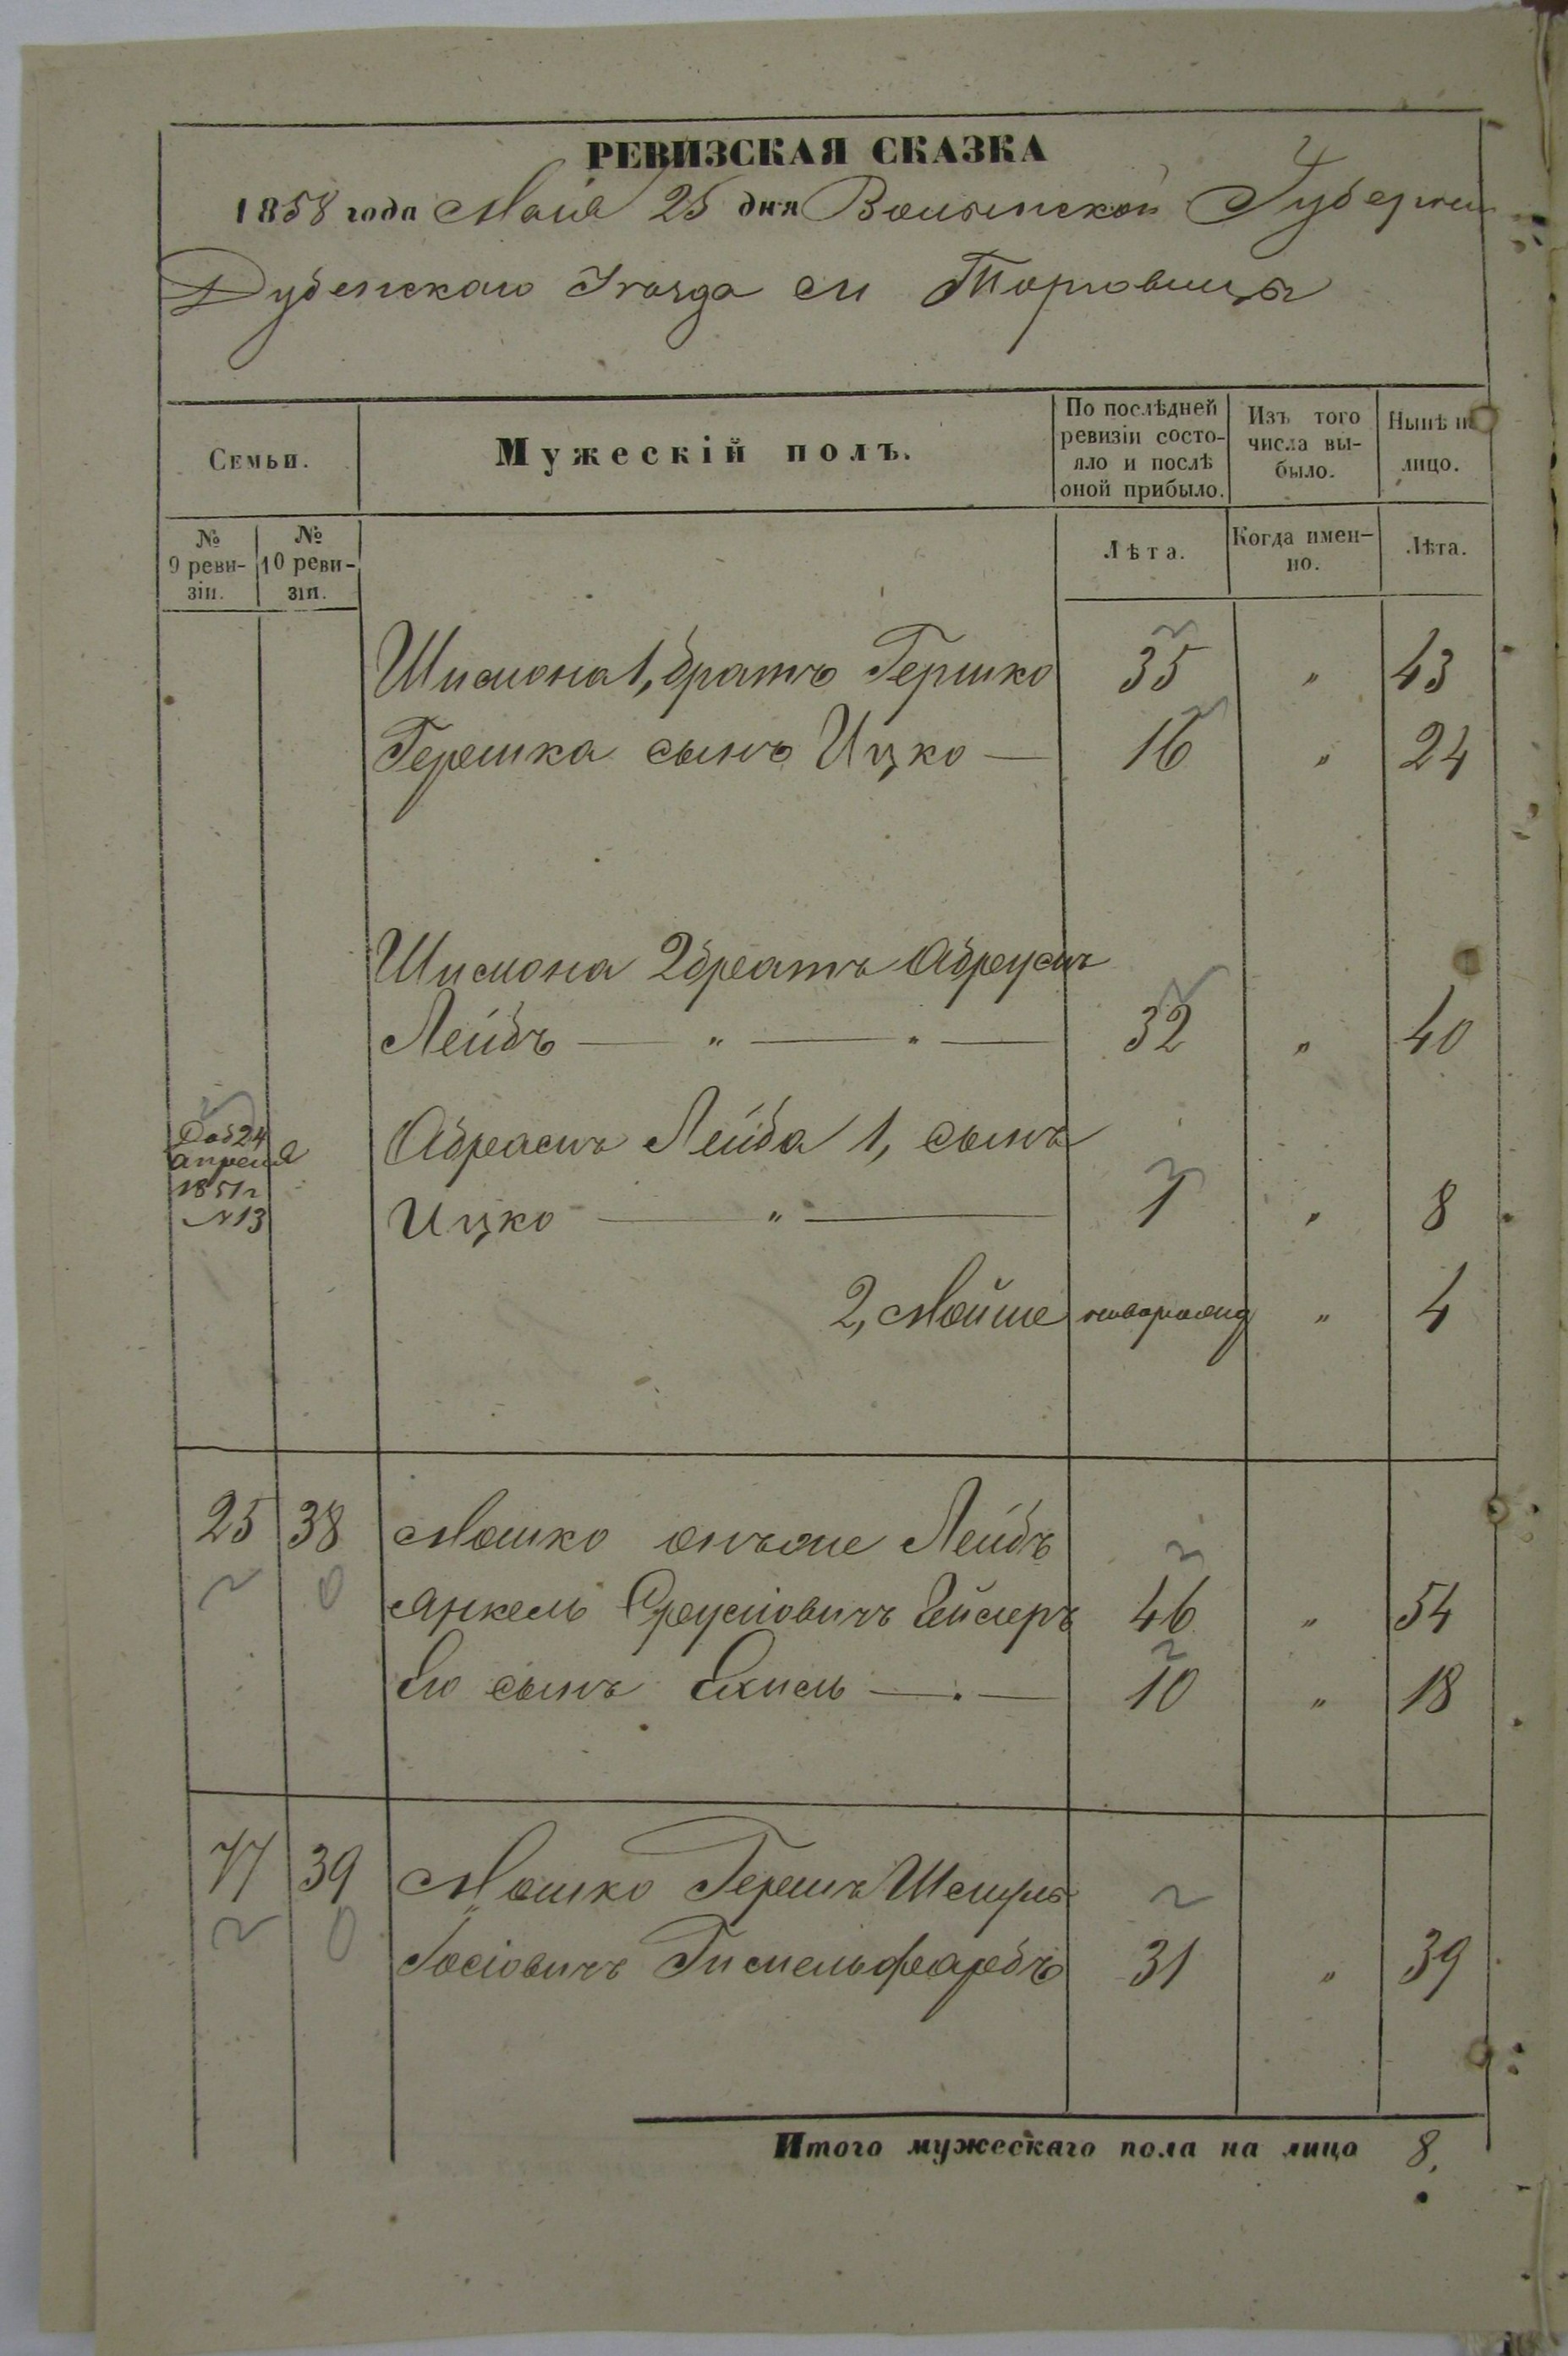 РЕВИЗСКАЯ СКАЗКА
1858 года Маія 25 дня Волынской Губерніи
Дубенскаго Уѣзда м Торговицы
Семьи.
Мужескій полъ.
По послѣдней ревизіи состо-
яло и послѣ
оной прибыло.
Изъ того
числа вы-
было.
Нынѣ н
лицо.
№
9 реви-
зіи.
№
10 реви-
зіи.
Лѣта.
Когда имен-
но.
Лѣта.
Шимона 1, братъ Гершко 35 " 43
Гершка сынъ Ицко — 16 " 24
Шимона 2 братъ Абрумъ
Лейбъ — " — " — 32 " 40
Доб 24
апреля
1851 г
N 13
Абрамъ Лейба 1, сынъ
Ицко — " — 1 " 8
2, Мойше " 4
25 38 Мошко онъже Лейбъ
Янкель Сруліовичъ 46 " 54
Его сынъ Ехиель — . — 10 " 18
77 39 Мошко Гершъ
Іосіовичъ Гимельфарбъ 31 " 39
Итого мужескаго пола на лицо 8.